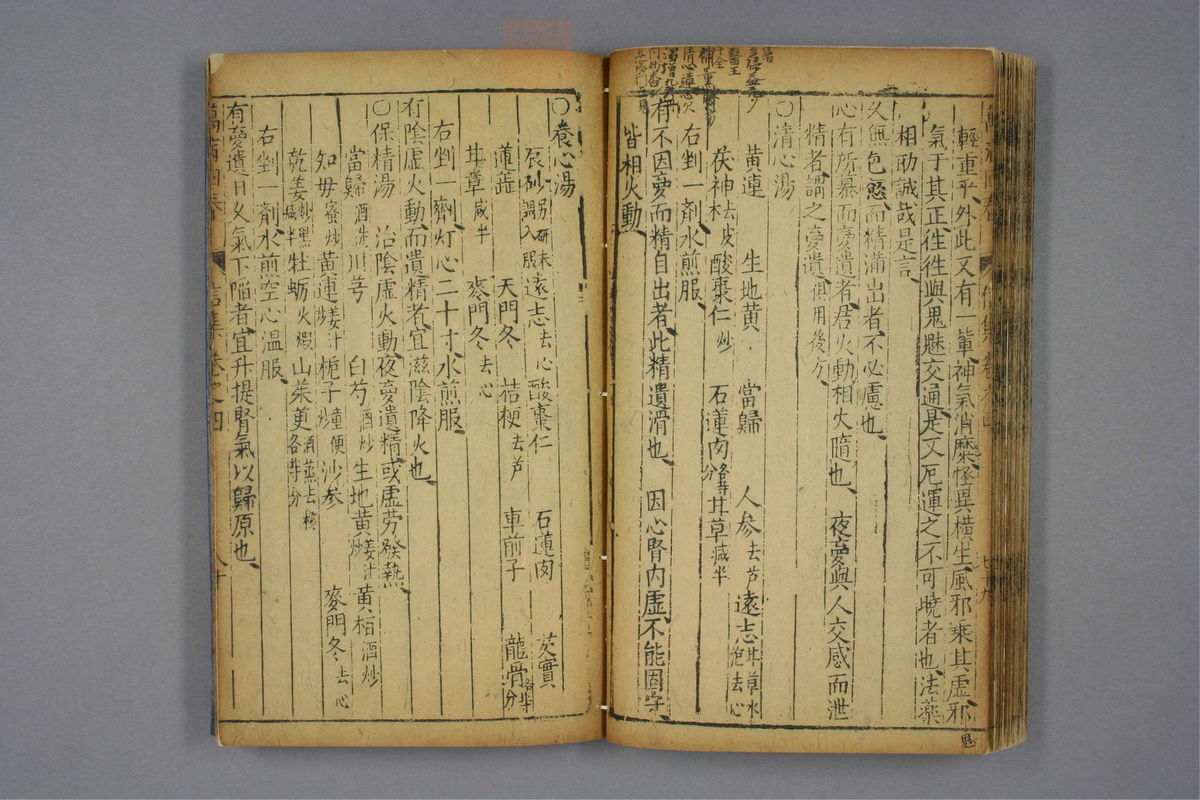 輕重乎外此又有一軰神氣消麋怪異橫生風邪乗其虛邪
氣于其正徃徃與鬼魅交通是又厄運之不可曉者也法藥
相助誠哉是言
又無色慾而精滿出者不必慮也
心有所慕而夣遺者君火動相火隨也 夜夣與人交感而泄
精者謂之夣遺俱用後方
〇清心湯
黃連 生地黃 當歸 人參去芦 遠志甘草水泡去心
茯神去皮木 酸棗仁炒 石蓮肉各等分 甘草减半
右剉一剤水煎服
有不因夣而精自出者此精遺滑也 因心腎内虛不能固守
皆相火動
〇養心湯
辰砂另研末調入服 遠志去心 酸棗仁 石蓮肉 芡實
蓮蕋 天門冬 桔梗去芦 車前子 龍骨各等分
甘草减半 麥門冬去心
右剉一劑灯心二十寸水煎服
有陰虛火動而遺精者宜滋陰降火也
〇保精湯 治陰虛火動夜夣遺精或虛劳發熱
當歸酒洗 川芎 白芍酒炒 生地黃姜汁炒 黃栢酒炒
知毋蜜炒 黃連姜汁炒 梔子童便炒 沙參 麥門冬去心
乾姜炒黑减半 牡蛎火煆 山茱萸酒蒸去核各等分
右剉一剤水煎空心温服
有夣遺日久氣下陷者宜升提腎氣以歸原也
萬病回春 信集 卷之四 八十